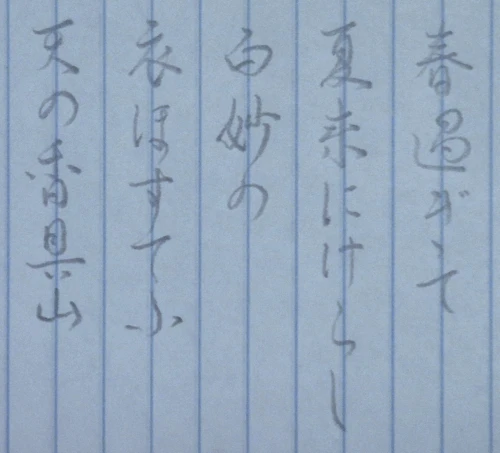 春過ぎて
夏来にけらし
白妙の
衣ほすてふ
天の香具山